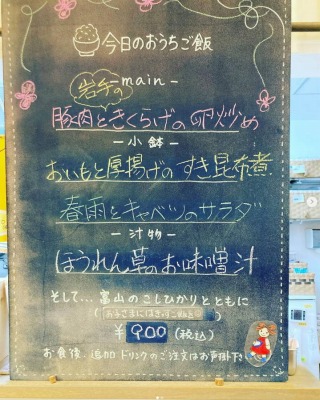 今日のおうちご飯
-main-
岩手の
豚肉ときくらげの卵炒め
-小鉢-
おいもと厚揚げのすき昆布煮
春雨とキャベツのサラダ
-汁物-
ほうれん草のお味噌汁
そして…富山のこしひかりとともに
¥900(税込)
お食後、追加ドリンクのご注文はお声掛け下